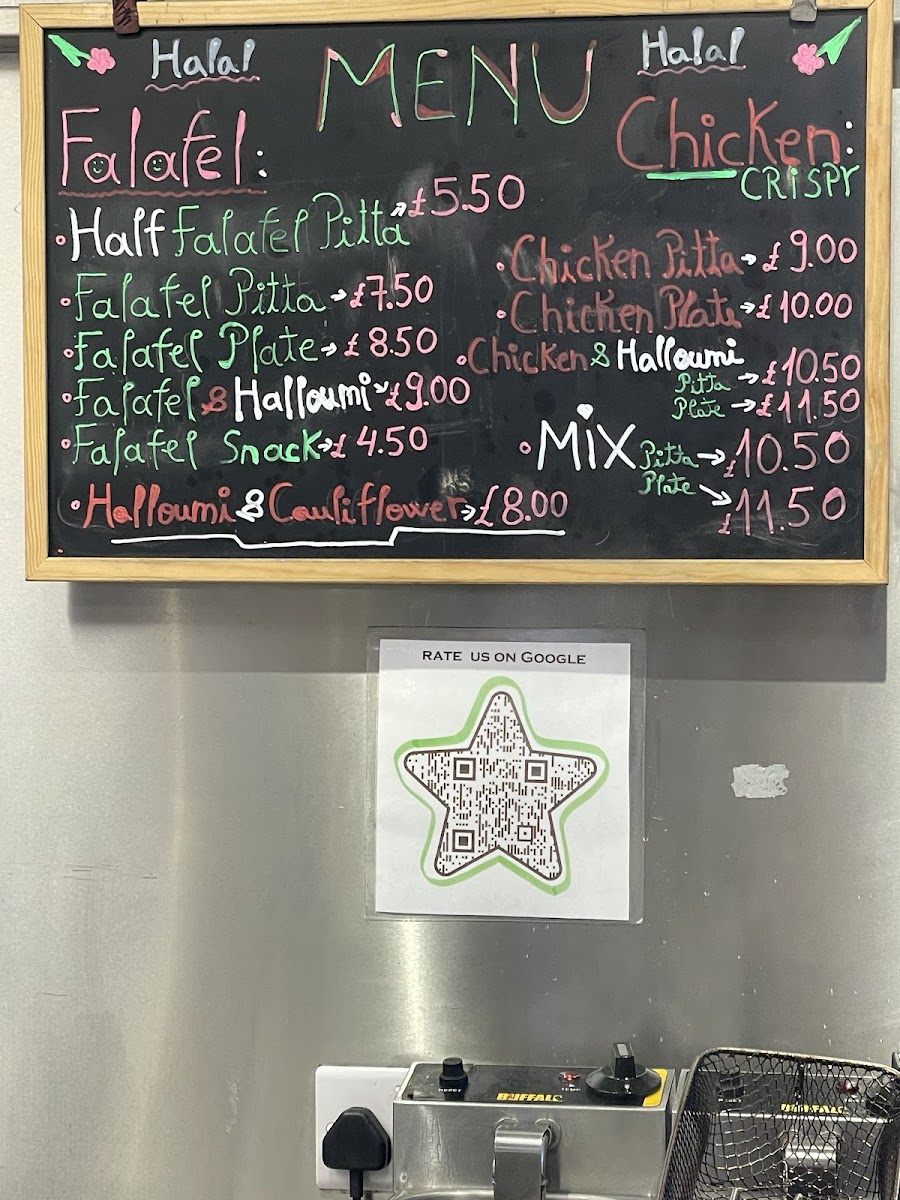 Halal MENU Halal
Falafel:
Half Falafel Pitta → £5.50
Falafel Pitta → £7.50
Falafel Plate → £8.50
Falafel & Halloumi → £9.00
Falafel Snack → £4.50
Halloumi & Cauliflower → £8.00
Chicken:
CRISPY
Chicken Pitta → £9.00
Chicken Plate → £10.00
Chicken & Halloumi
Pitta → £10.50
Plate → £11.50
MIX Pitta → £10.50
Plate → £11.50
RATE US ON GOOGLE
RESET
TEMP
BUFFALO
BUFFALO